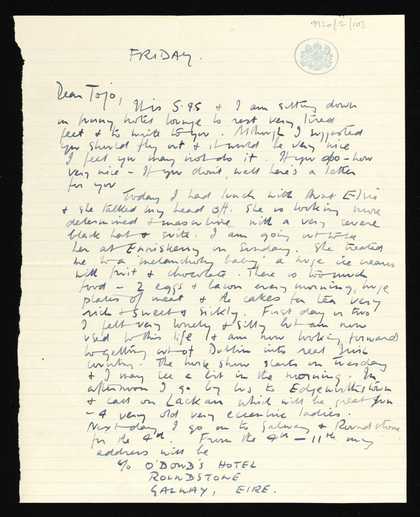 FRIDAY.
Dear Jojo,
This 5.45 & I am sitting down
in funny hotel lounge to rest very tired
feet & to write to you. Although I suggested
you should fly out & it would be very nice
I feel you may not do it. If you do - how
very nice - If you don't, well here's a letter
for you
Today I had lunch with Aunt
& she talked my head off. She is looking more
determined & masculine with a very severe
black hat & suit. I am going out to
her at Enniskerry on Sunday. She treated
me to a 'melancholy baby' a huge ice cream
with fruit & chocolate. There is too much
food - 2 eggs & bacon every morning, huge
plates of meat & the cakes for tea very
rich & sweet & sickly. First day or two
I felt very lonely & silly but am now
used to this life & am now looking forward
to getting out of Dublin into real Irish
country. The horse show starts on Tuesday
& I may see a bit in the morning. In
afternoon I go by bus to Edgeworthstown
& call on Lackan which will be great fun
- 4 very old very eccentric ladies.
Next day I go on to Galway & Roundstone
for the 4th. From the 4th - 11th my
address will be
c/o O'DOWD'S HOTEL
ROUNDSTONE
GALWAY, EIRE.